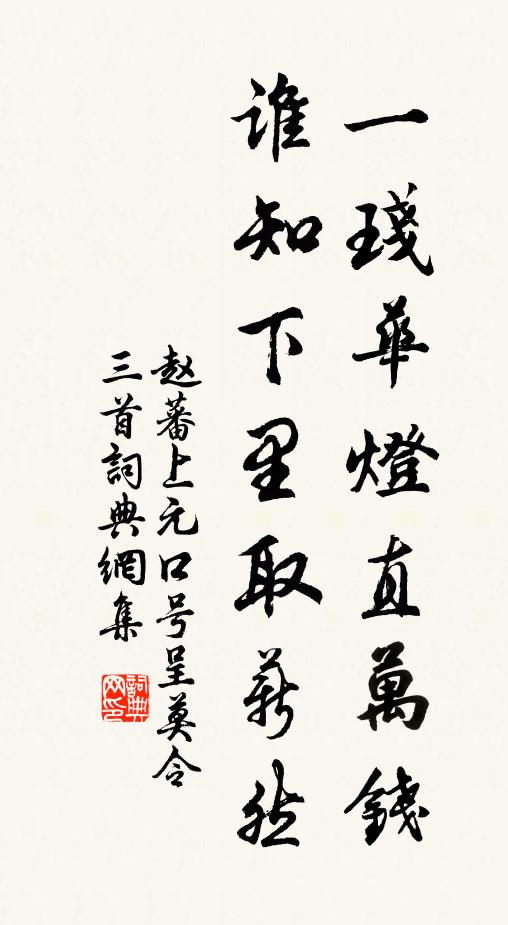 一琖華燈直萬錢
誰知下里取薪然
赵蕃上元口号呈莫令
三首詞典網集
詞典
网印